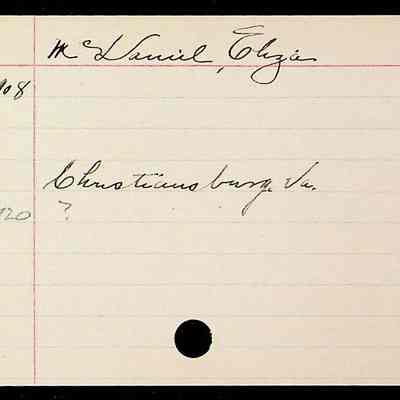 McDaniel, Eliza
908
Christiansburg, Va.
920 ?